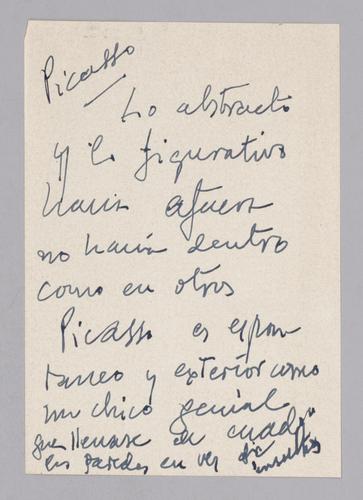 Picasso
Lo abstracto
y lo figurativo
hacia afuera
no hacia dentro
como en otros
Picasso es espon
taneo y exterior como
un chico genial
que llenase de cuadros
las paredes en vez de insultos